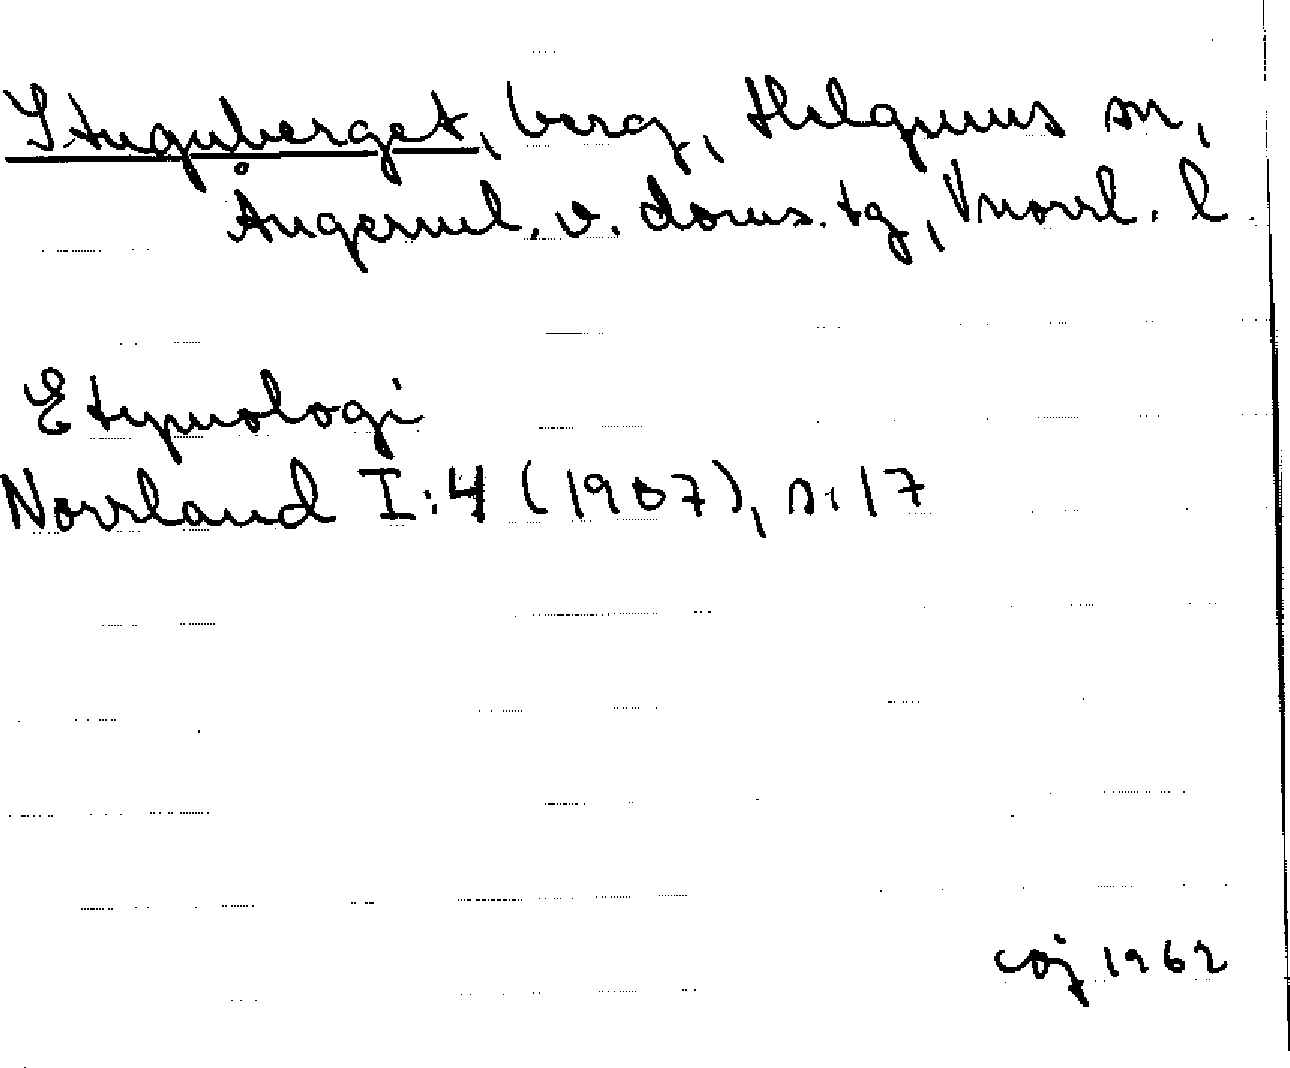 Stuguberget, berg, Helgums sn,
Ångerml. v. doms. tg, Vnorrl. l.
Etymologi
Norrland I:4 (1907), s. 17
coj 1962